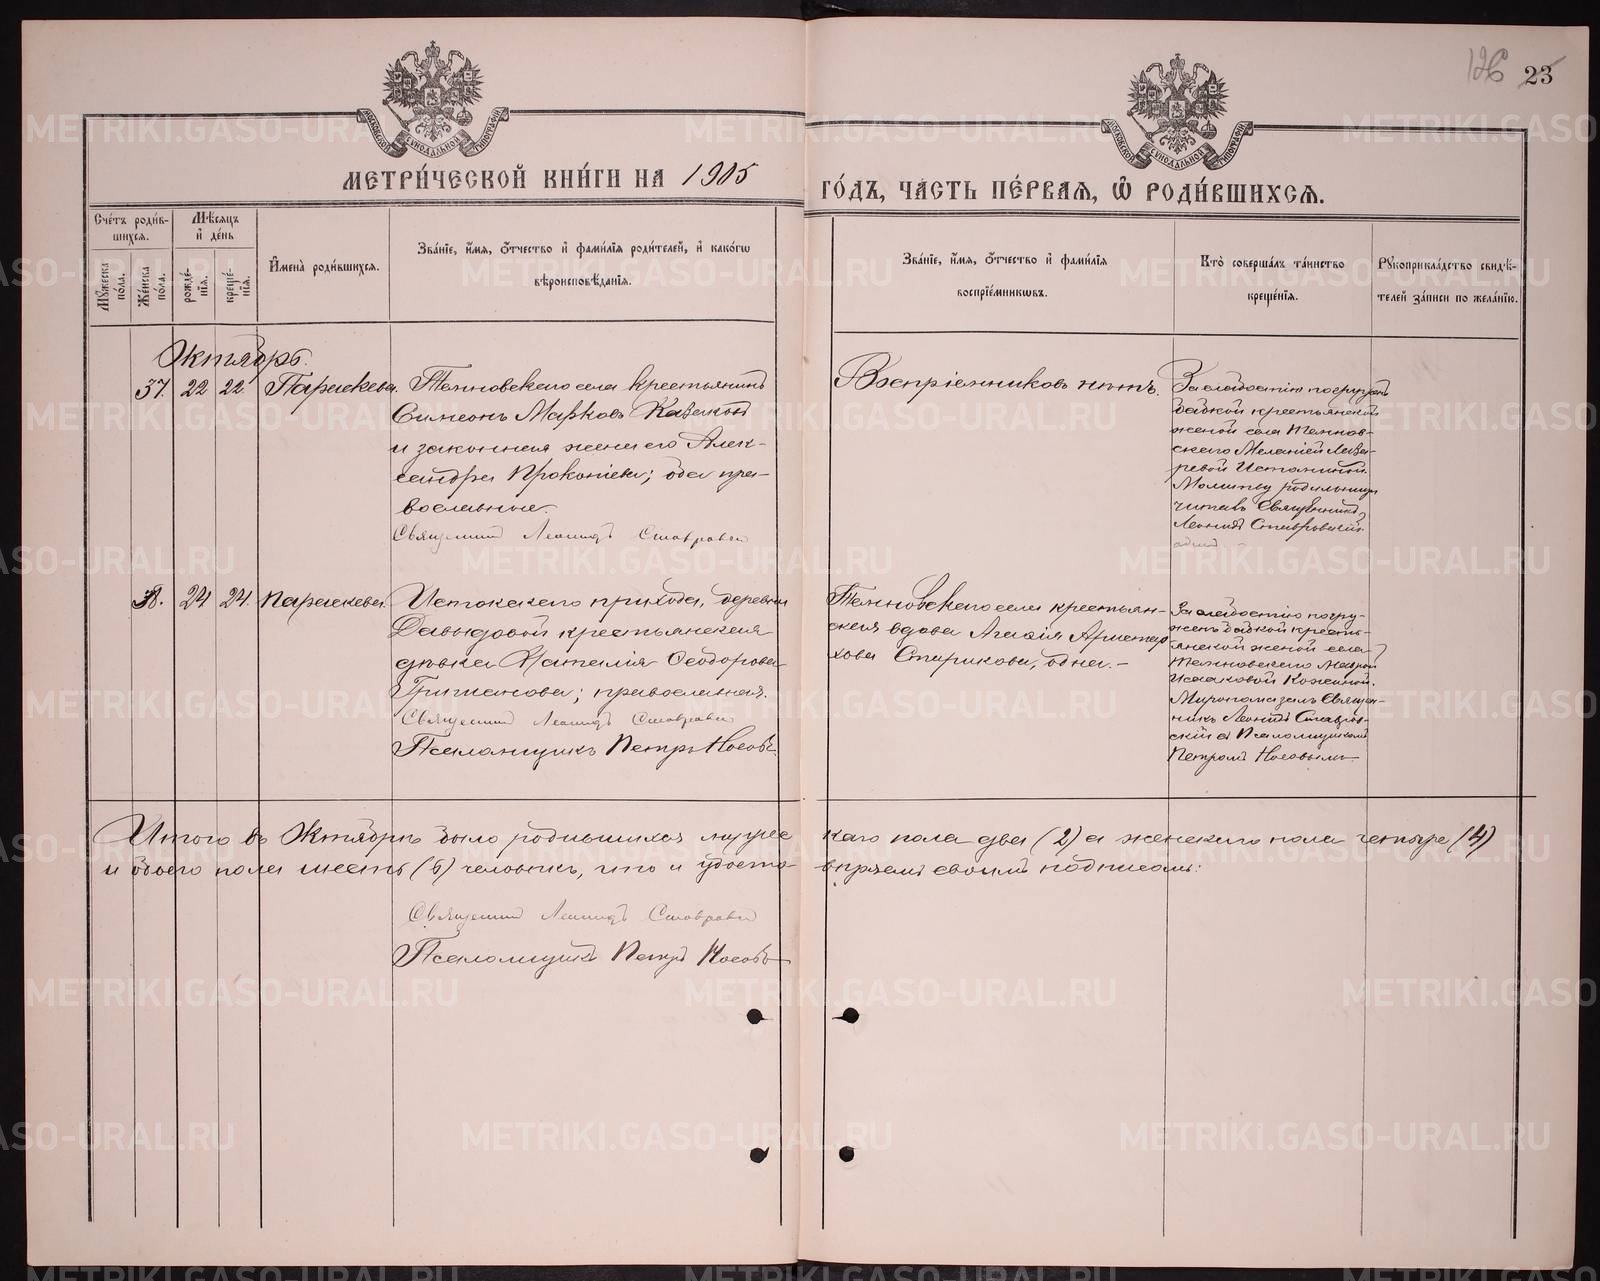 126 23
МОСКОВСКОЙ СѴНОДАЛЬНОЙ ТИПОГРАФІИ
МОСКОВСКОЙ СѴНОДАЛЬНОЙ ТИПОГРАФІИ
МЕТРИ́ЧЕСКОЙ КНИ́ГИ НА 1905 ГО́ДЪ, ЧА́СТЬ ПЕ́РВАѦ, Ѽ РОДИ́ВШИХСѦ.
Сче́тъ роди́в-
шихся.
Мꙋ́жеска по́ла.
Же́нска по́ла.
Мѣ́сяцъ
и҆ де́нь
рожде́-
нїя.
креще́-
нїя.
И҆мена̀ роди́вшихся.
Зва́нїе, и҆́мя, ѻ҆́тчество и҆ фами́лїя роди́телей, и҆ како́гѡ
вѣроисповѣ́данїя.
Зва́нїе, и҆́мя, ѻ҆́тчество и҆ фами́лїя
воспрїе́мникѡвъ.
Кто̀ соверша́лъ та́инство
креще́нїя.
Рꙋкоприкла́дство свидѣ́-
телей за́писи по жела́нїю.
Октябрь.
37. 22 22. Параскева.
Темновскаго села крестьянинъ
Симеонъ Марковъ
и законная жена его Алек-
сандра Прокопіева; оба пра-
вославные.
Священникъ Леонидъ Ставровскій
Воспріемниковъ нѣтъ.
За слабостію погруженъ
бабкой крестьянской
женой села Темнов-
скаго Меланіей
Молитву родильницѣ
читалъ Священникъ
Леонидъ Ставровскій
одинъ
38. 24 24. Параскева.
Истокскаго прихода, деревни
Давыдовой крестьянская
дѣвка Наталія Ѳеодорова
православная.
Священникъ Леонидъ Ставровскій
Псаломщикъ Петръ Носовъ.
Темновскаго села крестьян-
ская вдова Агаѳія Аристар-
хова Старикова, одна.-
За слабостію погру-
женъ бабкой кресть-
янской женой села
Темновскаго
Исааковой
Миропомазалъ Священ-
никъ Леонидъ Ставров-
скій съ Псаломщикомъ
Петромъ Носовымъ
Итого въ Октябрѣ было родившихся мужес-
каго пола два (2) а женскаго пола четыре (4)
и обоего пола шесть (6) человѣкъ, что и удосто-
вѣряемъ своимъ подписомъ:
Священникъ Леонидъ Ставровскій
Псаломщикъ Петръ Носовъ
METRIKI.GASO-URAL.RU